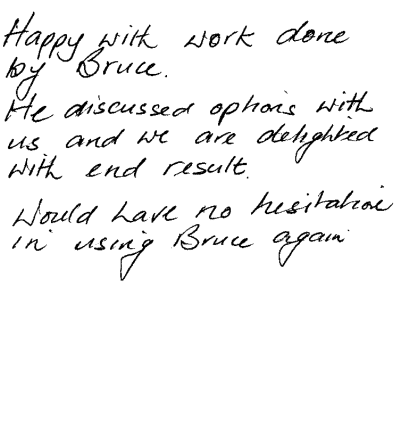 Happy with work done
by Bruce.
He discussed options with
us and we are delighted
with end result.
Would have no hesitation
in using Bruce again